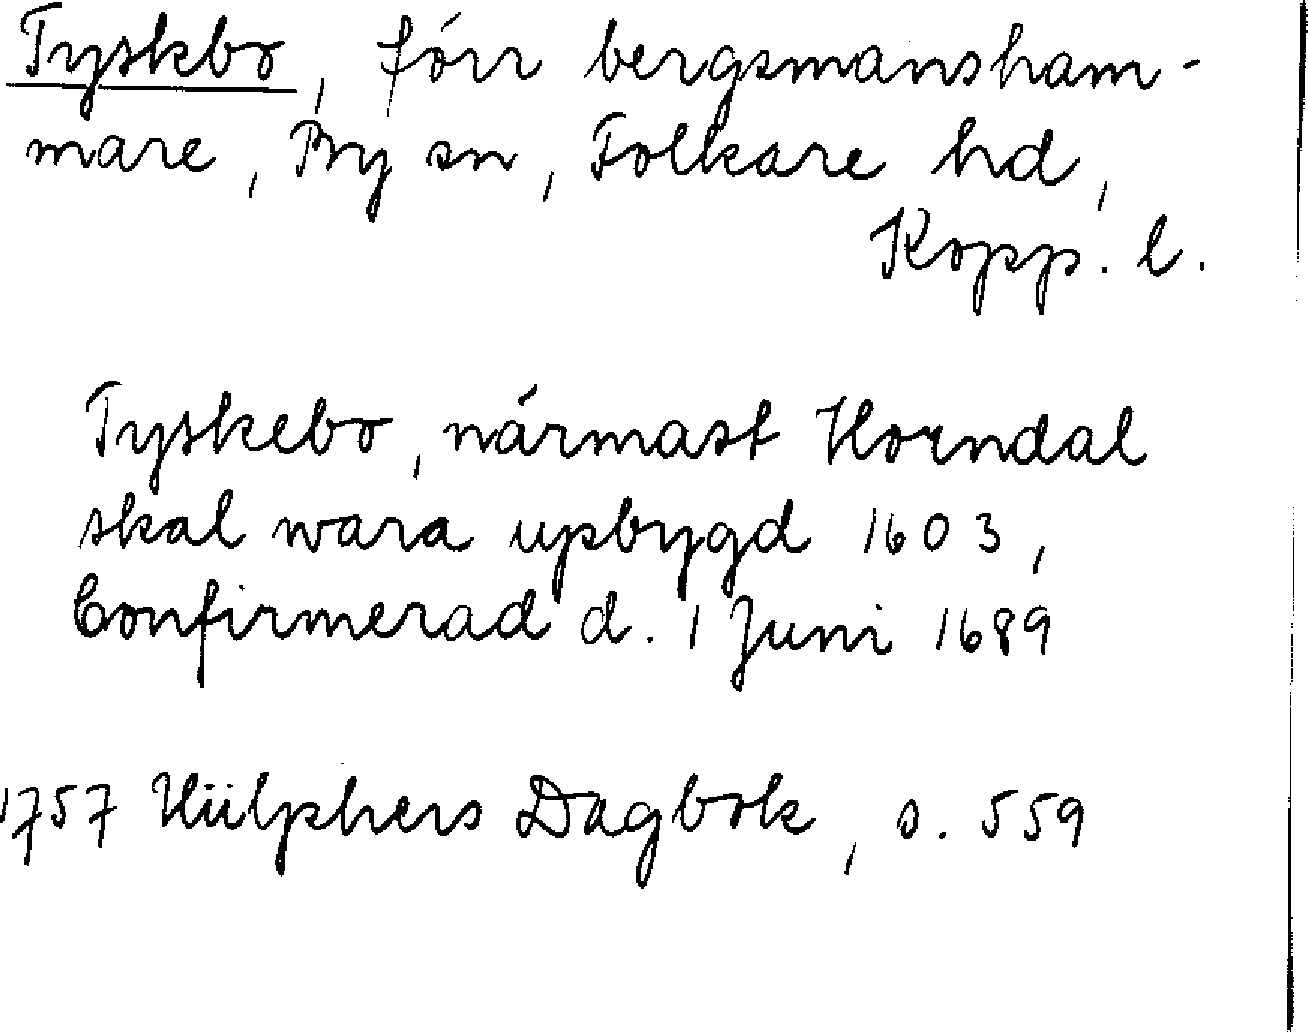 Tyskbo, förr bergsmansham-
mare, By sn, Folkare hd,
Kopp. l.
Tyskebo, närmast Horndal
skal wara upbygd 1603,
Confirmerad d. 1 Juni 1689
1757 Hülphers Dagbok, s. 559